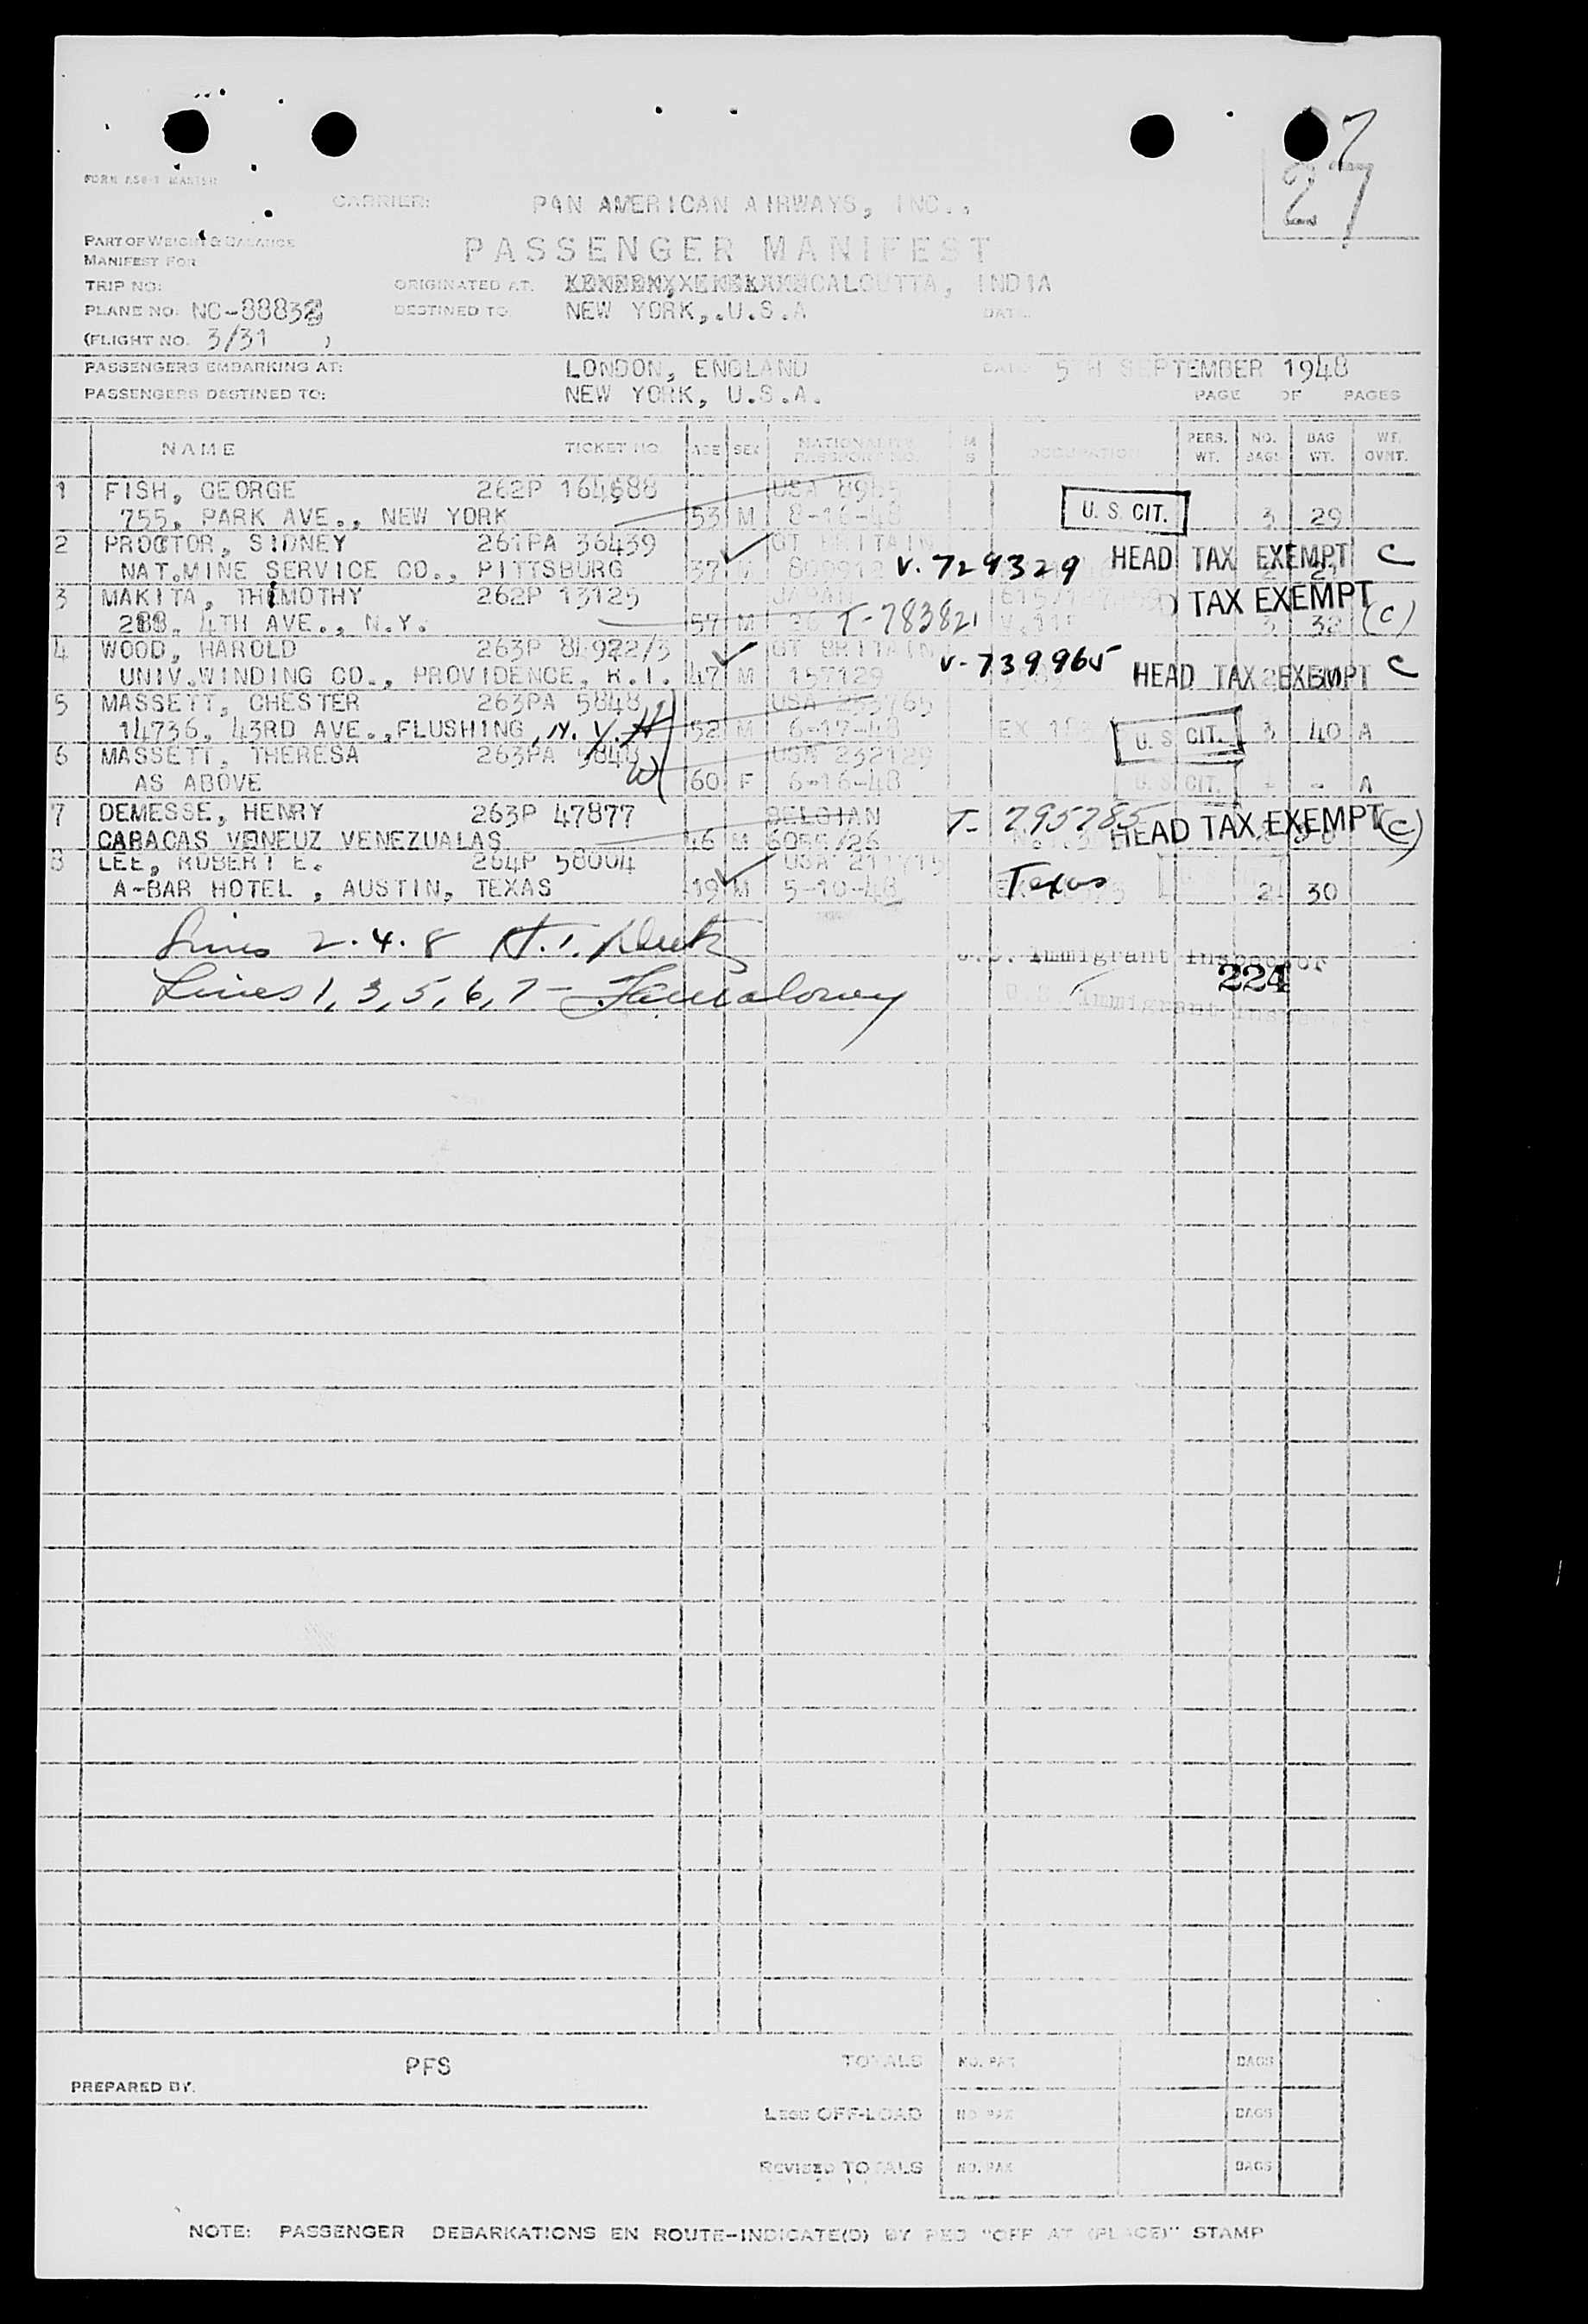 27
CARRIER: PAN AMERICAN AIRWAYS, INC.,
PART OF WEIGHT & BALANCE
MANIFEST FOR
PASSENGER MANIFEST
TRIP NO: ORIGINATED AT: CALCUTTA, INDIA
PLANE NO: NC-88838 DESTINED TO NEW YORK,.U.S.A
(FLIGHT NO. 3/31 )
PASSENGERS EMBARKING AT: LONDON, ENGLAND DATE 5TH SEPTEMBER 1948
PASSENGERS DESTINED TO: NEW YORK, U.S.A. PAGE OF PAGES
NAME TICKET NO. AGE SEX NATIONALITY PASSPORT NO. M S OCCUPATION PERS. WT. NO. BAGS BAG WT. WT. OVNT.
1 FISH, GEORGE 262P 164588 USA
755, PARK AVE., NEW YORK 53 M 8-16-48 U. S. CIT. 3 29
2 PROCTOR, SIDNEY 261PA 36439 GT BRITAIN
NAT.MINE SERVICE CO., PITTSBURG 37 V. 729329 HEAD TAX EXEMPT C
3 MAKITA, THIMOTHY 262P 13125 JAPAN
288, 4TH AVE., N.Y. 57 M T-783821 TAX EXEMPT 3 32 (C)
4 WOOD, HAROLD 263P GT BRITAIN
UNIV.WINDING CO., PROVIDENCE, R.I. 47 M 157129 V-739965 HEAD TAX EXEMPT C
5 MASSETT, CHESTER 263PA 5848 USA 253765
14736, 43RD AVE.,FLUSHING, N.Y. H 52 M 6-17-48 U. S. CIT. 3 40 A
6 MASSETT, THERESA 263PA 5848 W USA 232129
AS ABOVE 60 F 6-16-48 U. S. CIT. - - A
7 DEMESSE, HENRY 263P 47877 BELGIAN
CARACAS VENEUZ VENEZUALAS 46 M 6055/26 T- 795785 HEAD TAX EXEMPT (C)
8 LEE, ROBERT E. 264P 58004 USA
A-BAR HOTEL , AUSTIN, TEXAS 19 M 5-10-48 Texas 2 30
Lines 2.4.8
U.S. Immigrant Inspector
224
Lines 1, 3, 5, 6, 7 -
U.S. Immigrant Inspector
PFS
PREPARED BY.
TOTALS NO. PAX BAGS
LESS OFF-LOAD NO PAX BAGS
REVISED TOTALS NO. PAX BAGS
NOTE: PASSENGER DEBARKATIONS EN ROUTE-INDICATE(D) BY RED "OFF AT (PLACE)" STAMP